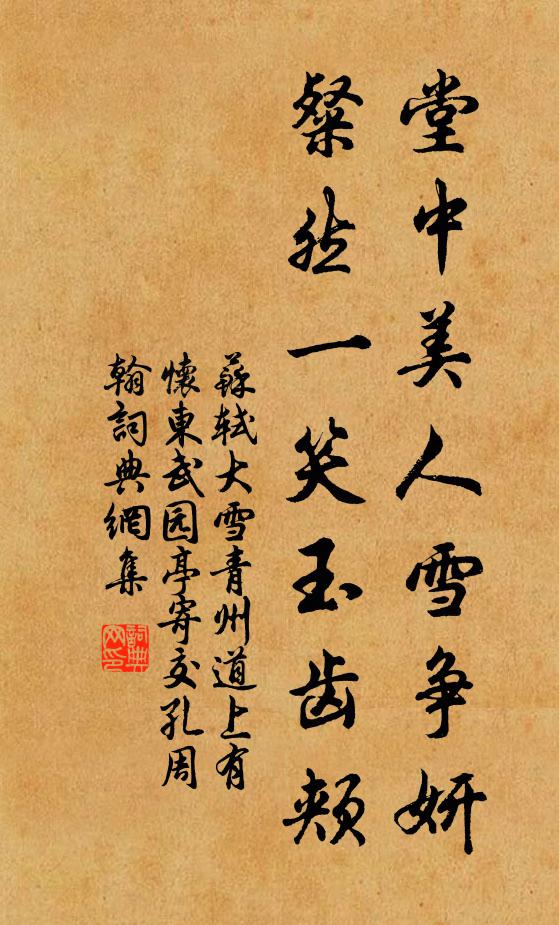 堂中美人雪争妍
粲然一笑玉齿颊
蘇轼大雪青州道上有
懷東武园亭寄交孔周
翰詞典網集
詞典网印